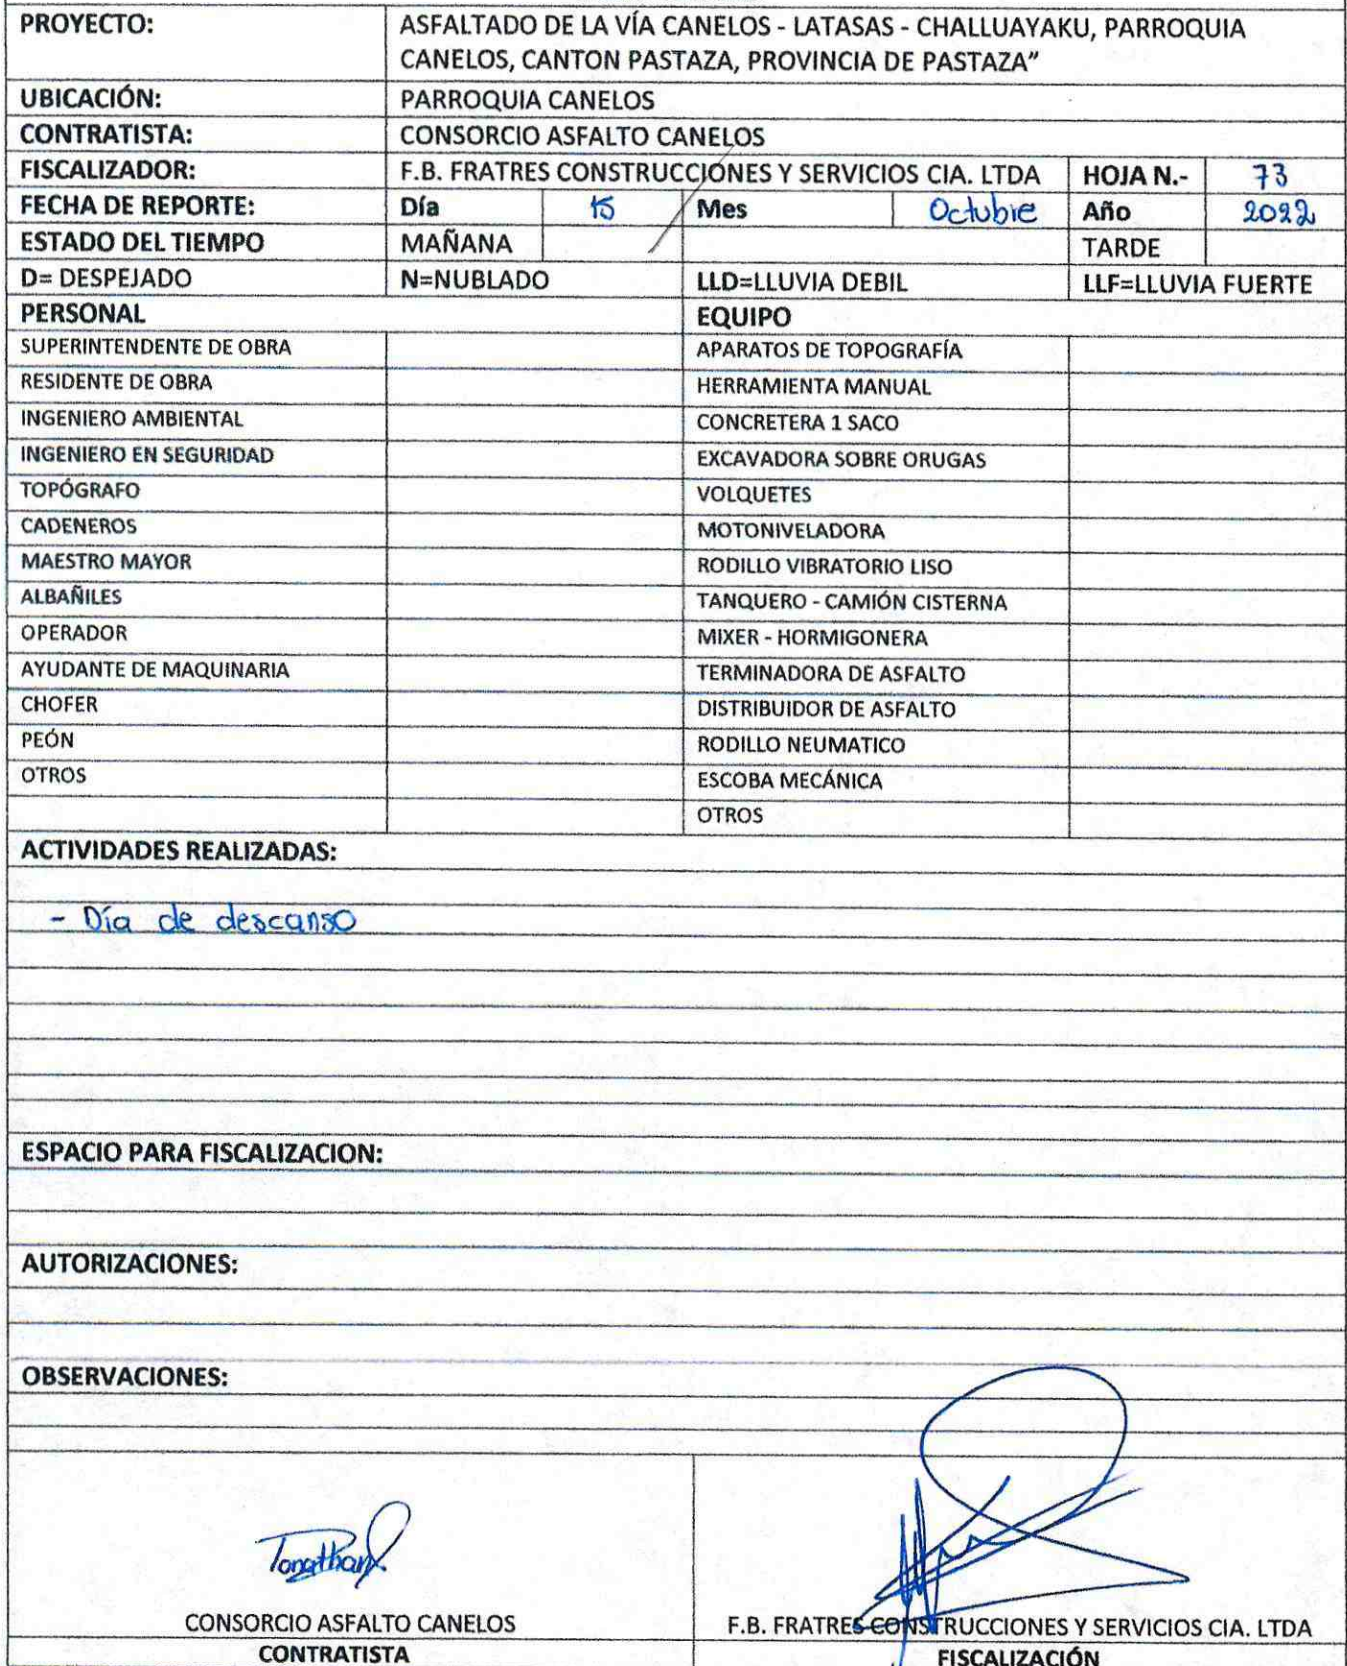 PROYECTO: ASFALTADO DE LA VÍA CANELOS - LATASAS - CHALLUAYAKU, PARROQUIA
CANELOS, CANTON PASTAZA, PROVINCIA DE PASTAZA"
UBICACIÓN: PARROQUIA CANELOS
CONTRATISTA: CONSORCIO ASFALTO CANELOS
FISCALIZADOR: F.B. FRATRES CONSTRUCCIONES Y SERVICIOS CIA. LTDA HOJA N.- 73
FECHA DE REPORTE: Día 15 Mes Octubre Año 2022
ESTADO DEL TIEMPO MAÑANA TARDE
D= DESPEJADO N=NUBLADO LLD=LLUVIA DEBIL LLF=LLUVIA FUERTE
PERSONAL EQUIPO
SUPERINTENDENTE DE OBRA APARATOS DE TOPOGRAFÍA
RESIDENTE DE OBRA HERRAMIENTA MANUAL
INGENIERO AMBIENTAL CONCRETERA 1 SACO
INGENIERO EN SEGURIDAD EXCAVADORA SOBRE ORUGAS
TOPÓGRAFO VOLQUETES
CADENEROS MOTONIVELADORA
MAESTRO MAYOR RODILLO VIBRATORIO LISO
ALBAÑILES TANQUERO - CAMIÓN CISTERNA
OPERADOR MIXER - HORMIGONERA
AYUDANTE DE MAQUINARIA TERMINADORA DE ASFALTO
CHOFER DISTRIBUIDOR DE ASFALTO
PEÓN RODILLO NEUMATICO
OTROS ESCOBA MECÁNICA
OTROS
ACTIVIDADES REALIZADAS:
- Día de descanso
ESPACIO PARA FISCALIZACION:
AUTORIZACIONES:
OBSERVACIONES:
CONSORCIO ASFALTO CANELOS F.B. FRATRES CONSTRUCCIONES Y SERVICIOS CIA. LTDA
CONTRATISTA FISCALIZACIÓN